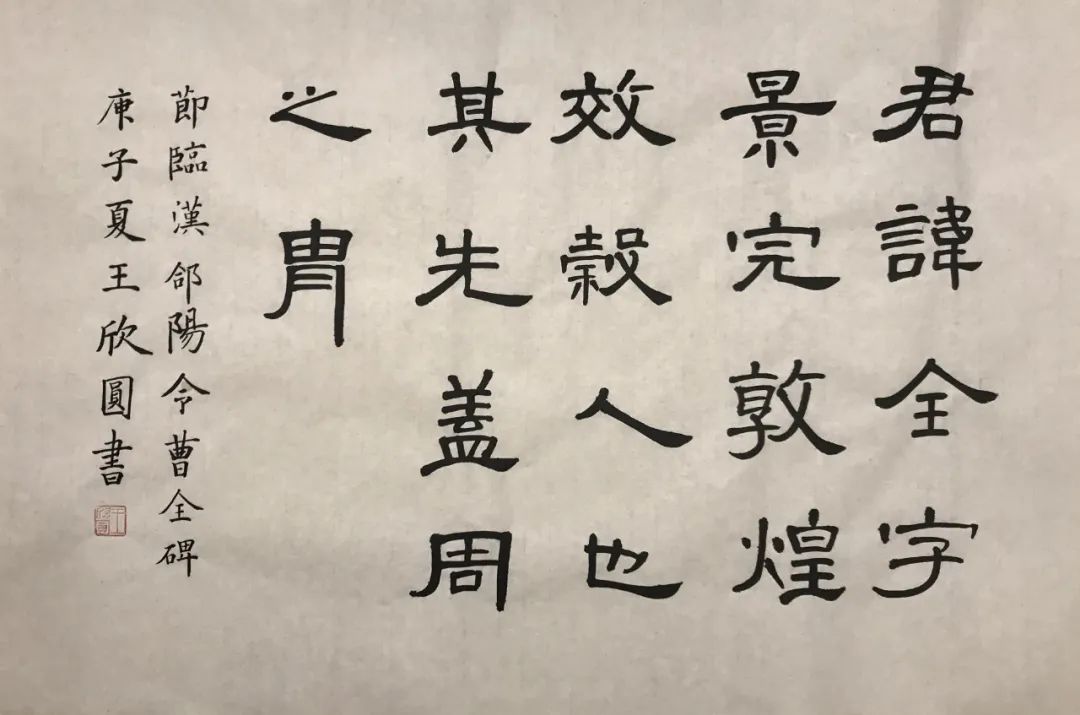 君諱全字
景完敦煌
效穀人也
其先盖周
之胄
節臨漢郃陽令曹全碑
庚子夏王欣圓書